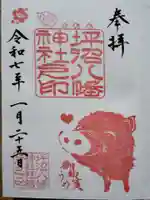 奉拝
坪沼八幡
神社之印
令和七年 一月二十五日